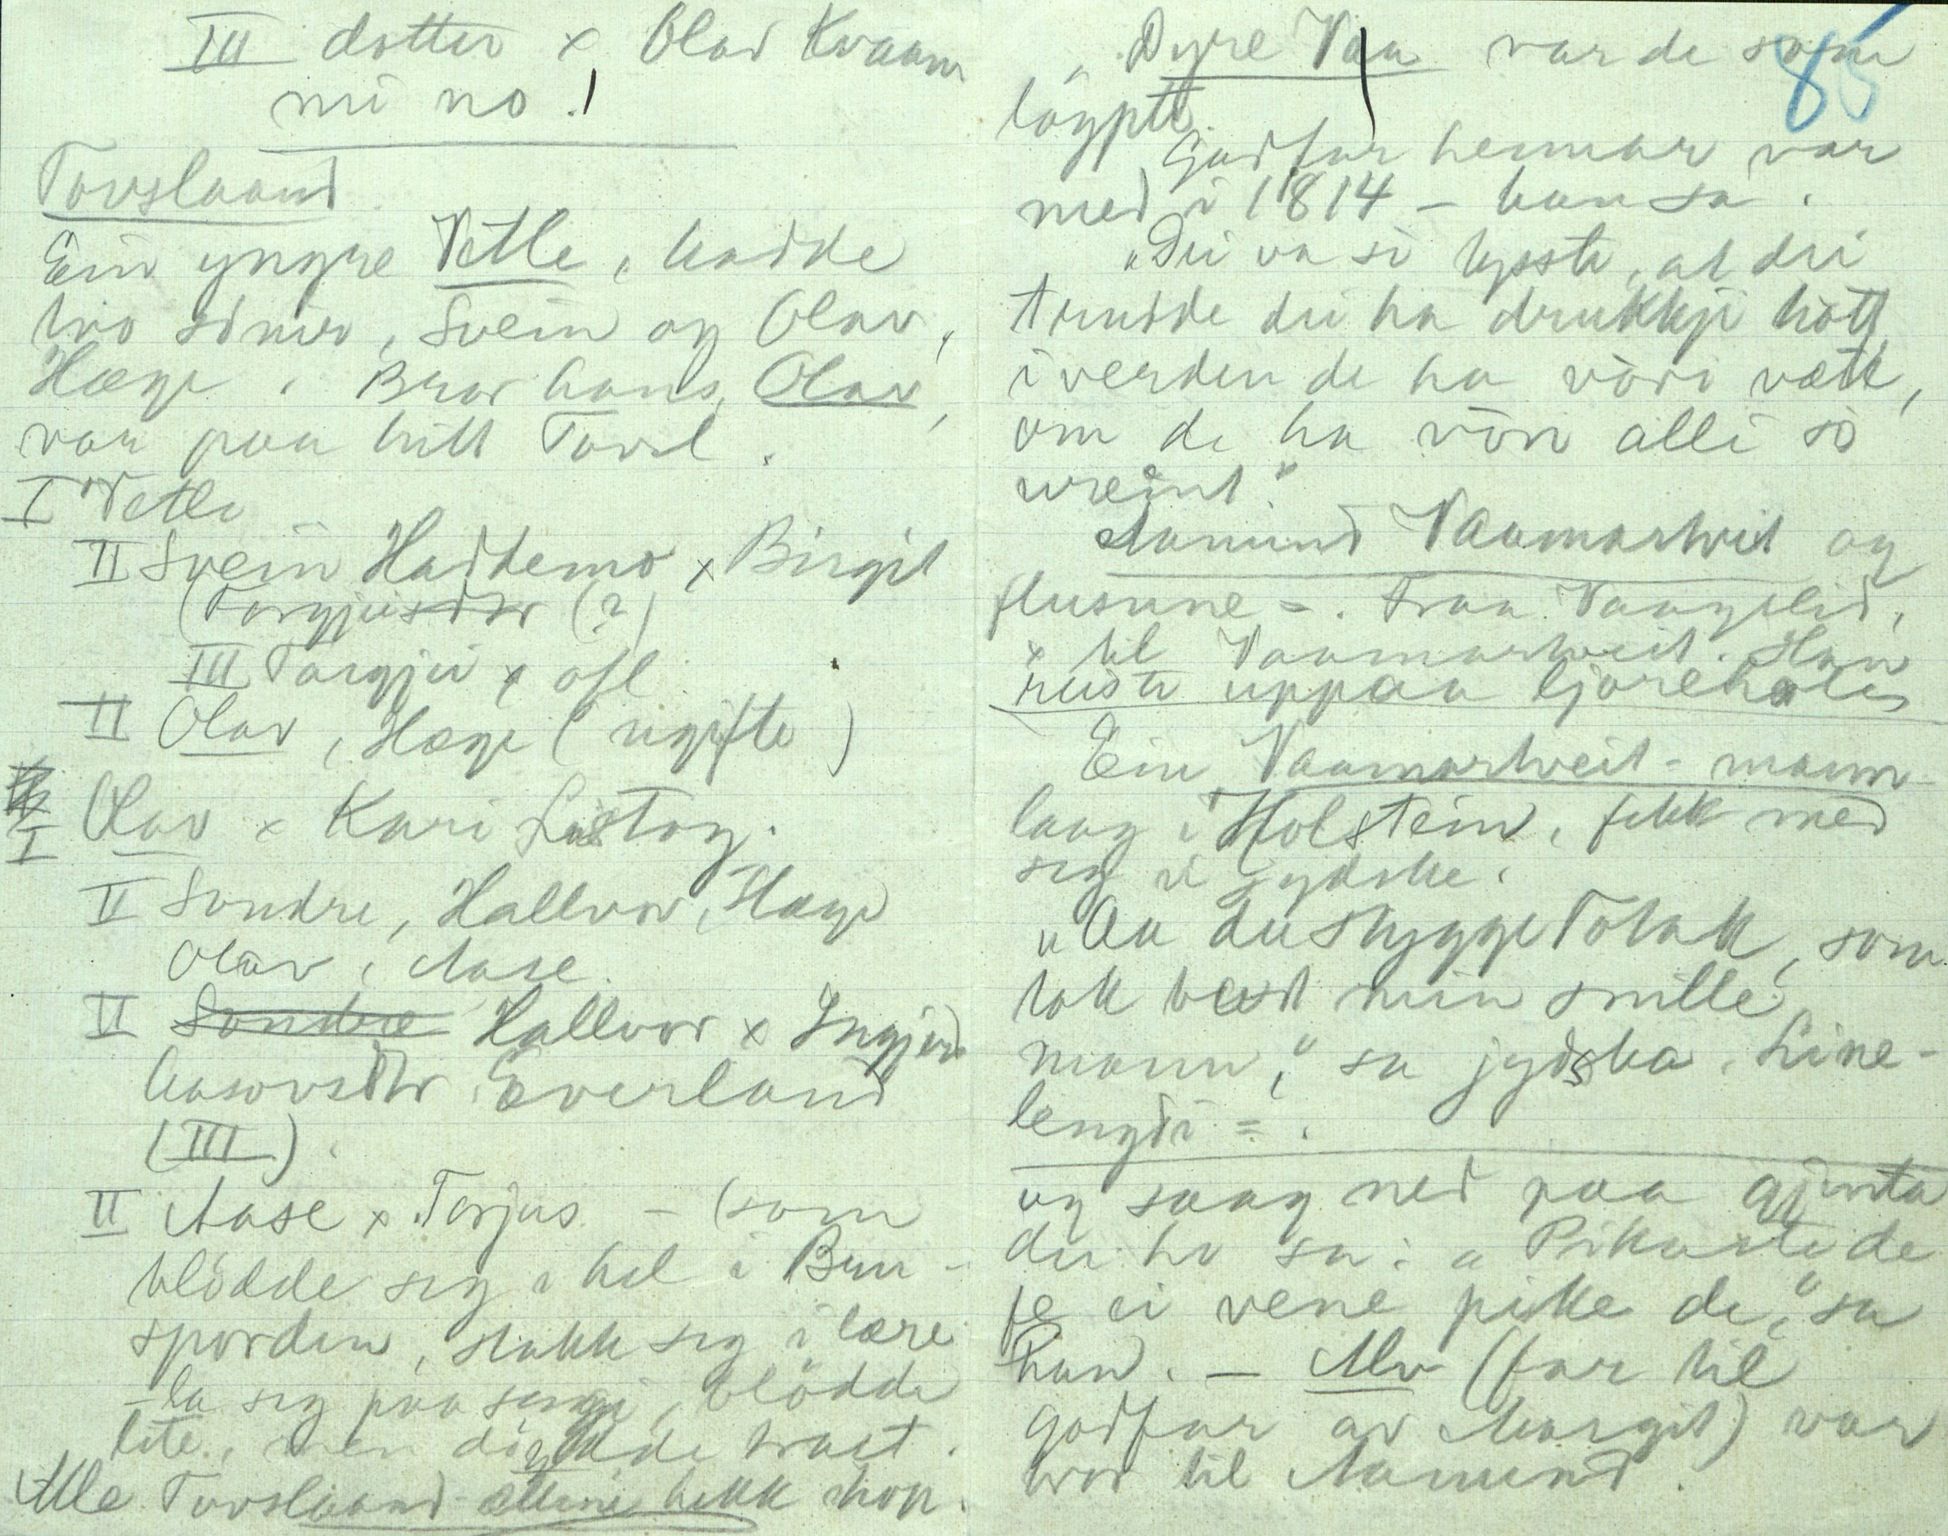 III dotter x Olav Kvaam
mi no.
Tovslaand
Ein yngre Vetle, hadde
two søner, Svein og Olav,
Hæge. Bror hans, Olav,
var paa hitt Tovsl.
I Vetle
II Svein Haddemo x Birgit
(Torgjusdtr (?)
III Torgjei x ofl.
II Olav, Hæge (ugifte)
I Olav x Kari Listog.
II Sondre, Hallvor, Hæge
Olav, Aase.
II Sondre Hallvor x Ingjer
Aasovsdtr Everland
(III).
II Aase x Torjus – (som
blödde seg i hel i Bun-
sporden, stakk seg i lære
– la seg paa sengi, blödde
lite, men döydde brast.
Alle Tovslaand-ættine hekk ihop.
85
Dyre Vaa var de som
löypte.
Godfar hennar var
med i 1814 – han sa.
"Dei va so tysste, at dei
trudde dei ha drukkji kott
i verden de ha vòri vætt,
om de ha vòri alli so
ureint."
Aamund Vaamartveit og
flusune =. Fraa Vaagslid,
x til Vaamartveit. Han
reiste uppaa ljorehòlen
Ein Vaamartveit-mann
laag i Holstein, fekk med
seg ei jydske.
"Aa du stygge Tòlakk, som
tok bort min snille
mann," sa jydska. Line-
lengdi =.
og saag ned paa gjenta
dei ho sa: "Pikaste de
fe ei vene pike de," sa
han. – Alv (far til
godfar av Margit) var
bror til Aamund.